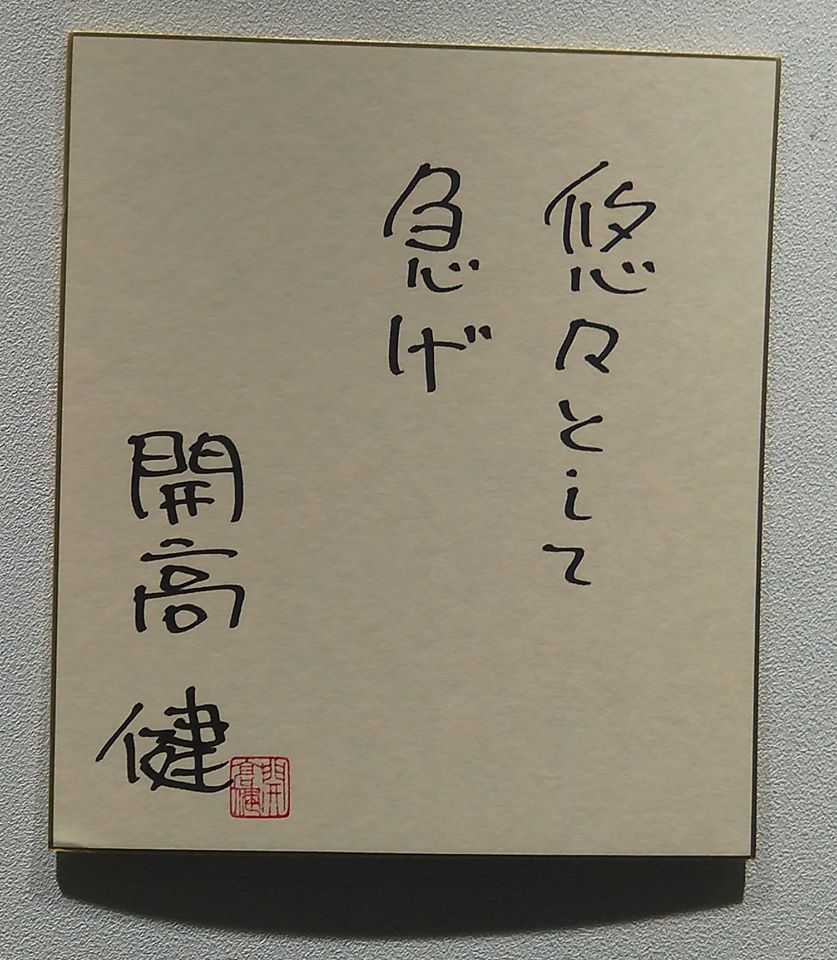 悠々として
急げ
開高
健
開高健